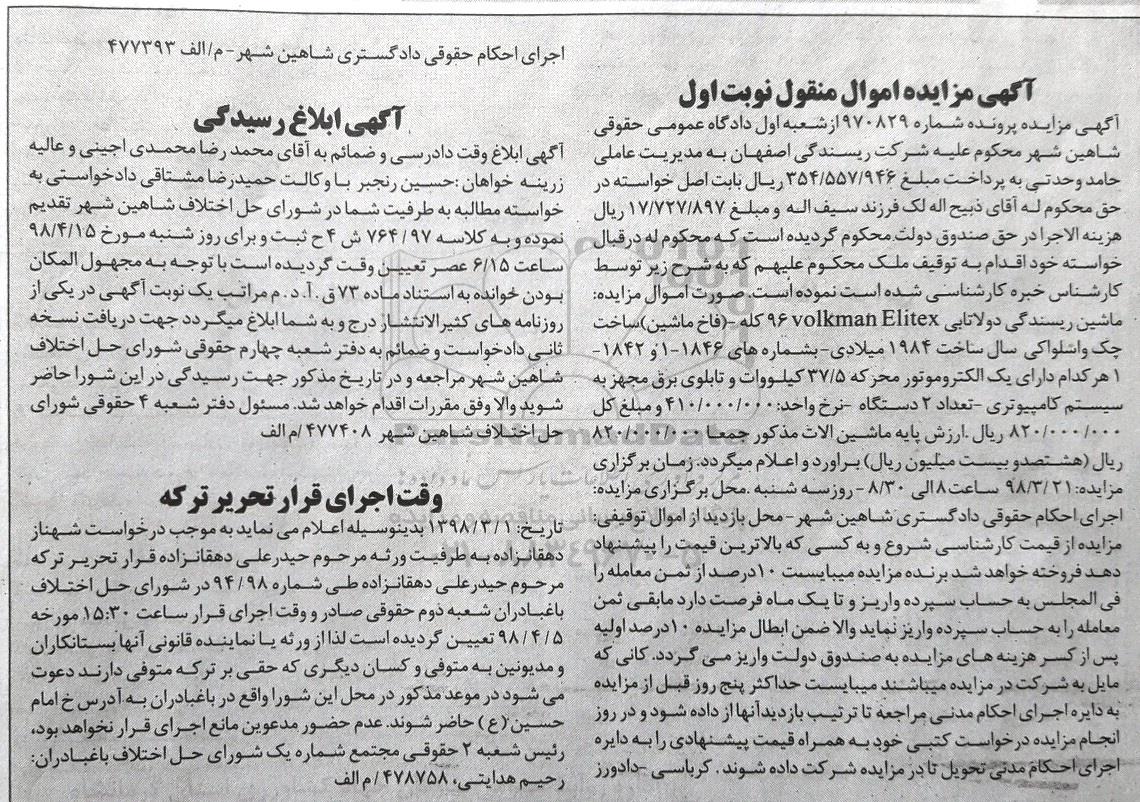 آگهی مزایده اموال منقول نوبت اول
آگهی مزایده پرونده شماره ۹۷۰۸۲۹ از شعبه اول دادگاه عمومی حقوقی
شاهین شهر محکوم علیه شرکت ریسندگی اصفهان به مدیریت عاملی
حامد وحدتی به پرداخت مبلغ ۳۵۴/۵۵۷/۹۴۶ ریال بابت اصل خواسته در
حق محکوم له آقای ذبیح اله لک فرزند سیف اله و مبلغ ۱۷/۷۲۷/۸۹۷ ریال
هزینه الاجرا در حق صندوق دولت محکوم گردیده است که محکوم له در قبال
خواسته خود اقدام به توقیف ملک محکوم علیهم که به شرح زیر توسط
کارشناس خبره کارشناسی شده است نموده است. صورت اموال مزایده:
ماشین ریسندگی دولاتابی volkman Elitex ۹۶ کله-(فاخ ماشین)ساخت
چک واشلواکی سال ساخت ۱۹۸۴ میلادی-بشماره های ۱۸۴۶-۱ و ۱۸۴۲-
۱ هرکدام دارای یک الکتروموتور محرکه ۳۷/۵ کیلووات و تابلوی برق مجهز به
سیستم کامپیوتری -تعداد ۲ دستگاه -نرخ واحد: ۴۱۰/۰۰۰/۰۰۰ و مبلغ کل
۸۲۰/۰۰۰/۰۰۰ ریال .ارزش پایه ماشین الات مذکور جمعا ۸۲۰/۰۰۰/۰۰۰
ریال (هشتصدو بیست میلیون ریال) براورد و اعلام میگردد. زمان برگزاری
مزایده: ۹۸/۳/۲۱ ساعت ۸ الی ۸/۳۰ - روز سه شنبه .محل برگزاری مزایده:
اجرای احکام حقوقی دادگستری شاهین شهر- محل بازدید از اموال توقیفی:
مزایده از قیمت کارشناسی شروع و به کسی که بالاترین قیمت را پیشنهاد
دهد فروخته خواهد شد برنده مزایده میبایست ۱۰درصد از ثمن معامله را
فی المجلس به حساب سپرده واریز و تا یک ماه فرصت دارد مابقی ثمن
معامله را به حساب سپرده واریز نماید والا ضمن ابطال مزایده ۱۰درصد اولیه
پس از کسر هزینه های مزایده به صندوق دولت واریز می گردد. کانی که
مایل به شرکت در مزایده میباشند میبایست حداکثر پنج روز قبل از مزایده
به دایره اجرای احکام مدنی مراجعه تا ترتیب بازدیدآنها از داده شود و در روز
انجام مزایده درخواست کتبی خود به همراه قیمت پیشنهادی را به دایره
اجرای احکام مدنی تحویل تا در مزایده شرکت داده شوند . کرباسی -دادورز
اجرای احکام حقوقی دادگستری شاهین شهر- م/الف ۴۷۷۳۹۳
آگهی ابلاغ رسیدگی
آگهی ابلاغ وقت دادرسی و ضمائم به آقای محمد رضا محمدی اجینی و عالیه
زرینه خواهان :حسین رنجبر با وکالت حمیدرضا مشتاقی دادخواستی به
خواسته مطالبه به طرفیت شما در شورای حل اختلاف شاهین شهر تقدیم
نموده و به کلاسه ۷۶۴/۹۷ ش ۴ ح ثبت و برای روز شنبه مورخ ۹۸/۴/۱۵
ساعت ۶/۱۵ عصر تعیین وقت گردیده است با توجه به مجهول المکان
بودن خوانده به استناد ماده ۷۳ ق.آ.د.م مراتب یک نوبت آگهی در یکی از
روزنامه های کثیرالانتشار درج و به شما ابلاغ میگردد جهت دریافت نسخه
ثانی دادخواست و ضمائم به دفتر شعبه چهارم حقوقی شورای حل اختلاف
شاهین شهر مراجعه و در تاریخ مذکور جهت رسیدگی در این شورا حاضر
شوید والا وفق مقررات اقدام خواهد شد. مسئول دفتر شعبه ۴ حقوقی شورای
حل اختلاف شاهین شهر ۴۷۷۴۰۸ /م الف
وقت اجرای قرار تحریر ترکه
تاریخ: ۱۳۹۸/۳/۱ بدینوسیله اعلام می نماید به موجب درخواست شهناز
دهقانزاده به طرفیت ورثه مرحوم حیدرعلی دهقانزاده قرار تحریر ترکه
مرحوم حیدرعلی دهقانزاده طی شماره ۹۴/۹۸ در شورای حل اختلاف
باغبادران شعبه دوم حقوقی صادر و وقت اجرای قرار ساعت ۱۵:۳۰ مورخه
۹۸/۴/۵ تعیین گردیده است لذا از ورثه یا نماینده قانونی آنها بستانکاران
و مدیونین به متوفی و کسان دیگری که حقی بر ترکه متوفی دارند دعوت
می شود در موعد مذکور در محل این شورا واقع در باغبادران به آدرس خ امام
حسین (ع) حاضر شوند. عدم حضور مدعوین مانع اجرای قرار نخواهد بود،
رئیس شعبه ۲ حقوقی مجتمع شماره یک شورای حل اختلاف باغبادران:
رحیم هدایتی، ۴۷۸۷۵۸ /م الف
ParsNamadData